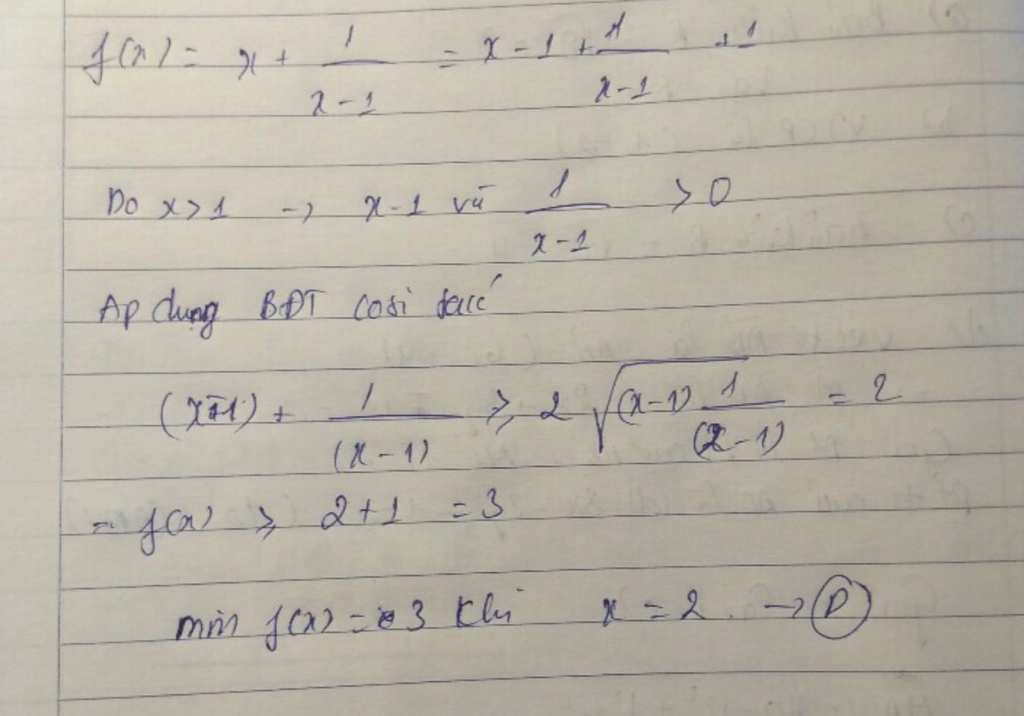 f(x) = x + 1/(x-1) = x - 1 + 1/(x-1) + 1
Do x > 1 → x-1 và 1/(x-1) > 0
Ap dụng BĐT Cosi
(x-1) + 1/(x-1) ≥ 2 √((x-1) 1/(x-1)) = 2
= f(x) ≥ 2+1 = 3
min f(x) = 3 Khi x = 2 → D